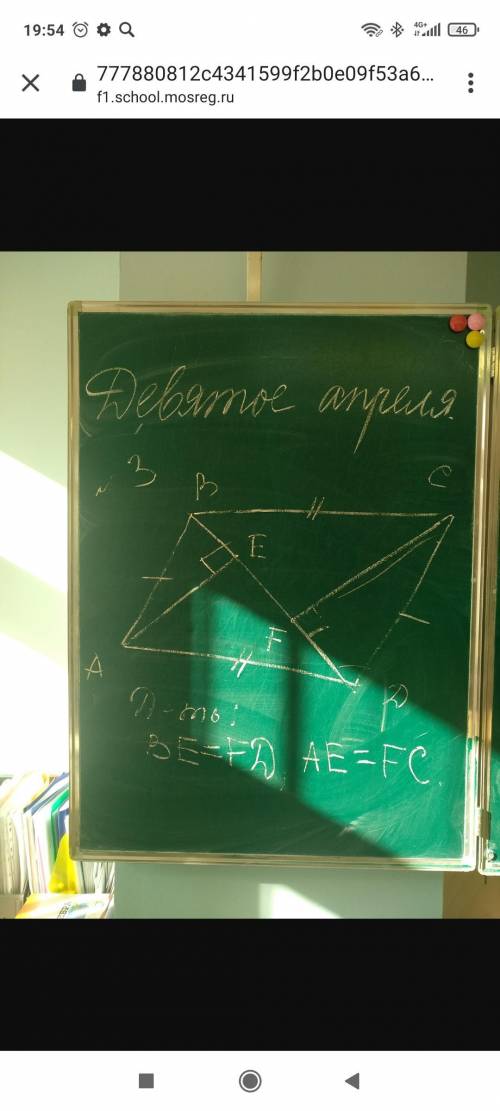 19:54 4G+ 46
777880812c4341599f2b0e09f53a6...
f1.school.mosreg.ru
Девятое апреля
№ 3
B C
E
F
A D
Д-ть:
BE=FD, AE=FC.